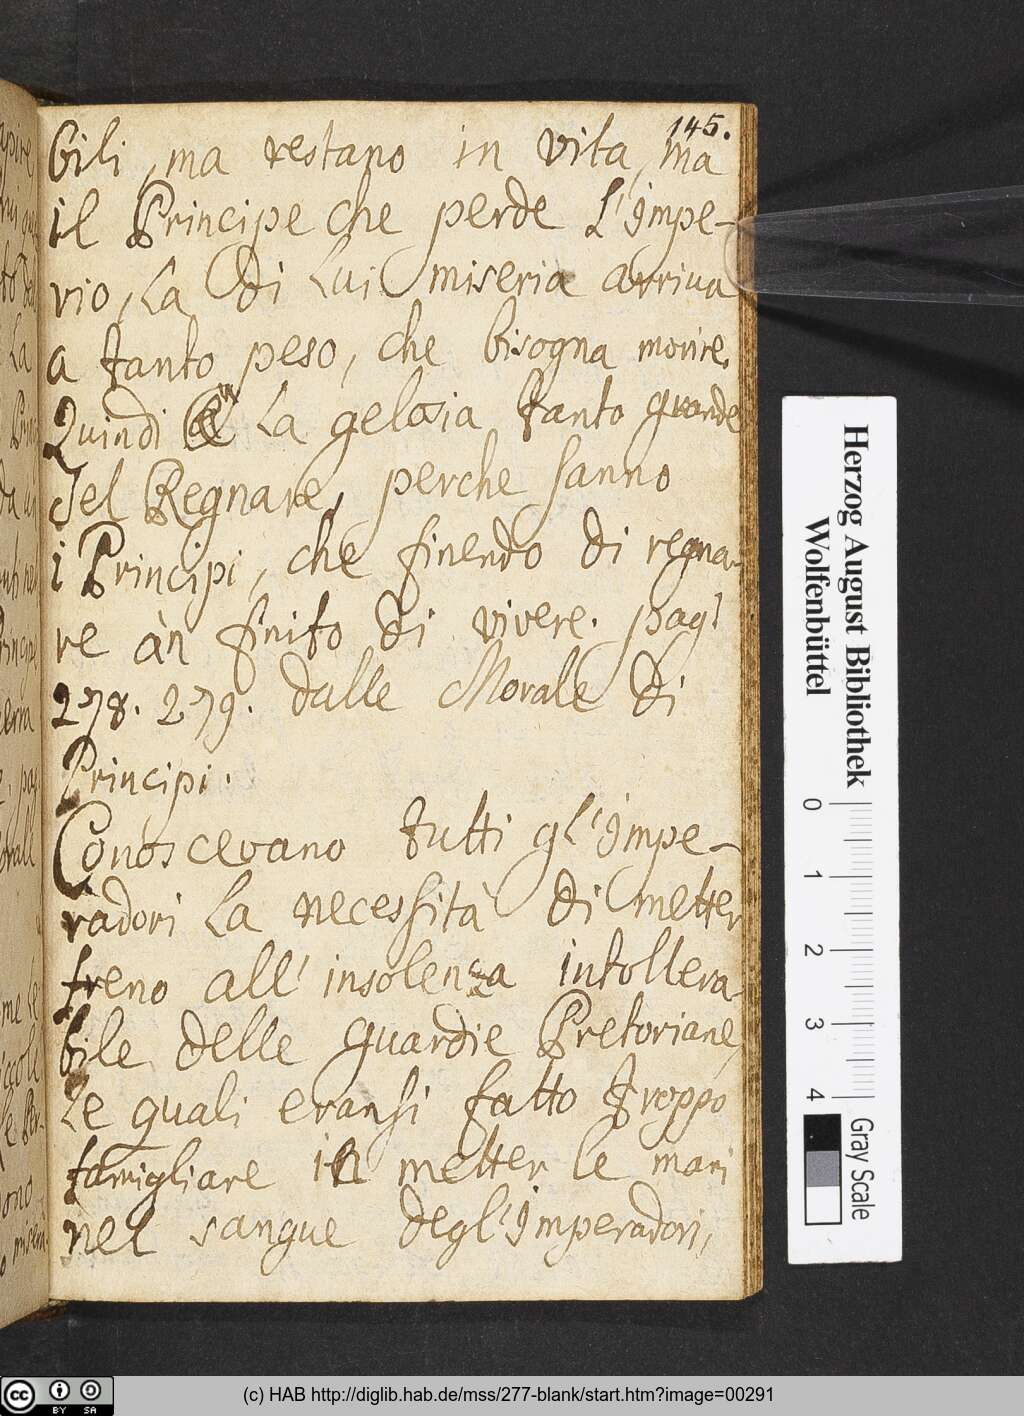 145.
bili, ma restano in vita, ma
il Principe che perde L'Impe-
rio, La di Lui miseria arriva
a tanto peso, che bisogna morire.
Quindi è La gelosia tanto grande
del Regnare, perche sanno
i Principi, che finendo di regna-
re àn finito di vivere. pag.
278. 279. dalle Morale di
Principi.
Conoscevano tutti gl'Impe-
radori La necessità di metter
freno all'insolenza intollera-
bile delle guardie Pretoriane,
Le quali eransi fatto troppo
famigliare in metter le mani
nel sangue degl'Imperadori,
Herzog August Bibliothek
Wolfenbüttel
0 1 2 3 4
Gray Scale
CC BY SA
(c) HAB http://diglib.hab.de/mss/277-blank/start.htm?image=00291